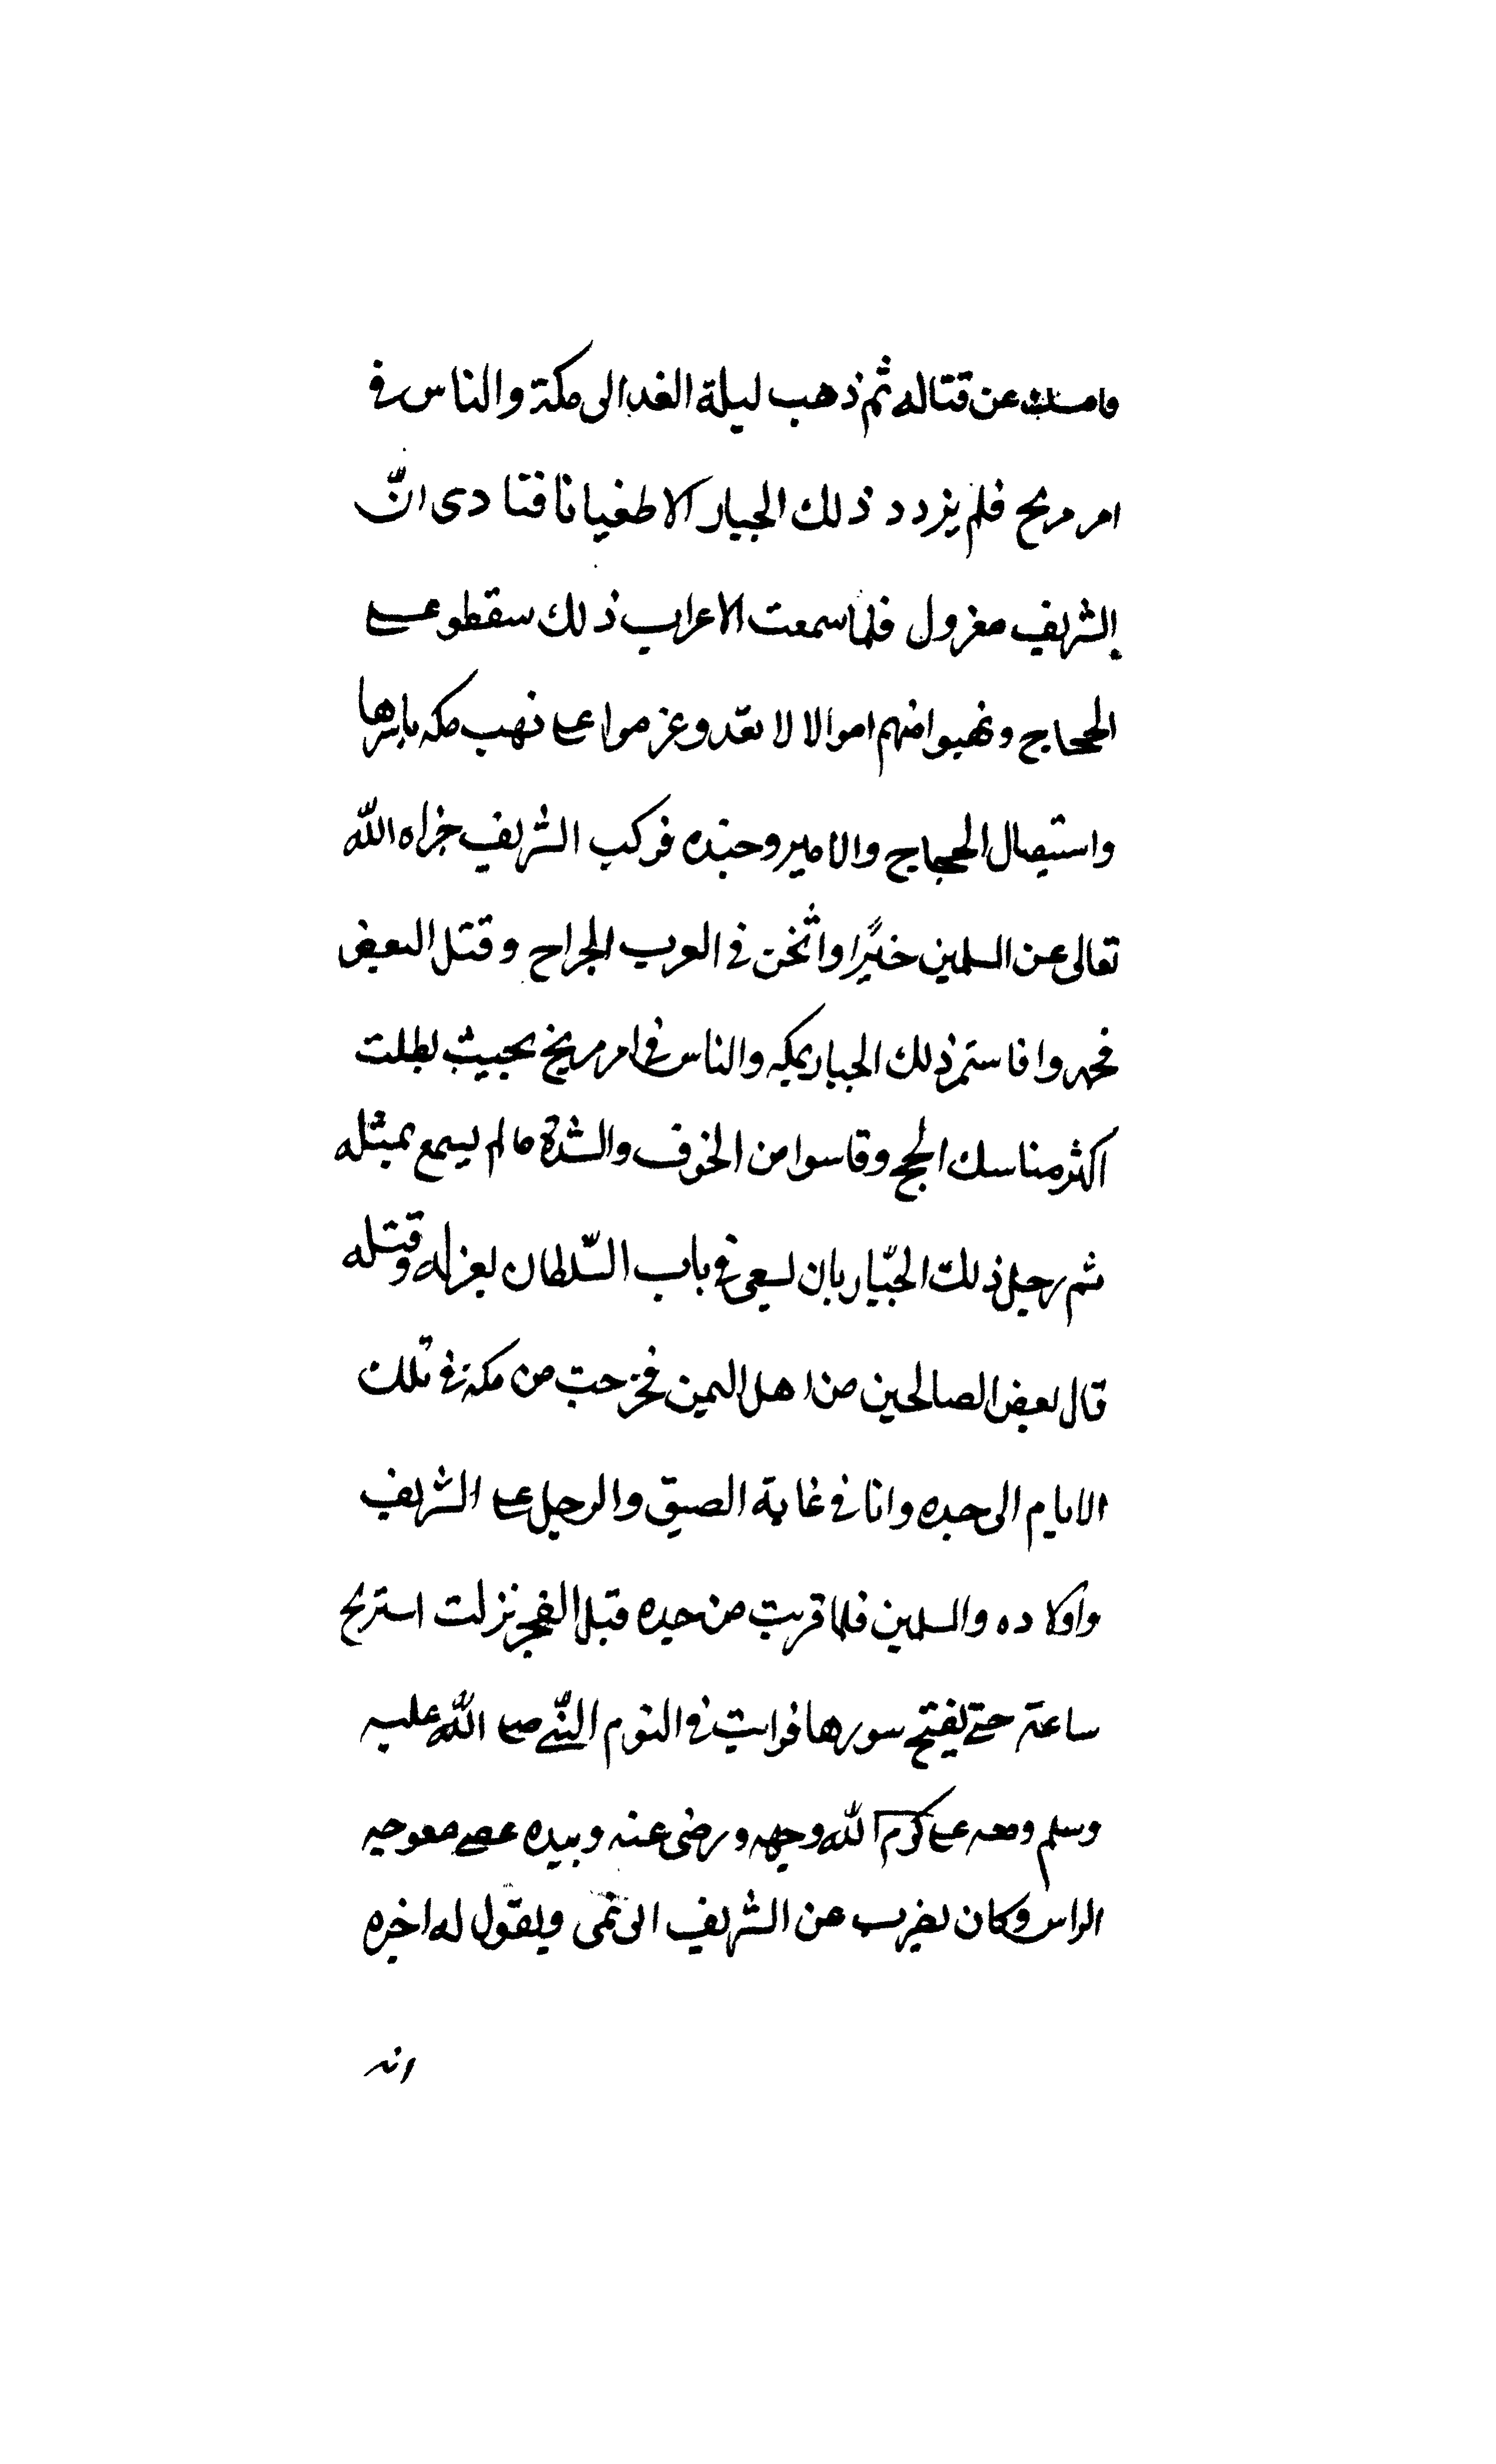 فامسك عن قتاله ثم ذهب ليلة الغد الى مكة والناس في
امر مريح فلم يزدد ذلك الجبار الا طغيانا فنادى انّ
الشريف معزول فلما سمعت الاعراب ذلك سقطو على
الحجاج ونهبوا منهم اموالا لا تعد وعزموا على نهب مكه باسرها
واستيصال الحجاج والامير وجنده فركب الشريف جزاه الله
تعالى عن المسلمين خيرًا واثخن في العرب الجراح وقتل البعض
فخمدوا فاستمر ذلك الجبار بمكه والناس في امر مريخ بحيث بطلت
اكثر مناسك الحج وقاسوا من الخوف والشدة ما لم يسمع بمثله
ثم رحل ذلك الجبّار بان يسعى في باب السّلطان بعزله وقتله
قال بعض الصالحين من اهل اليمن فخرجت من مكة في تلك
الايام الى جده وانا في غاية الضيق والوجل على الشريف
واولاده والمسلمين فلما قربت من جده قبل الفجر نزلت استريح
ساعة حتى يفتح سورها فرايت في النوم النّبي صلى الله عليه
وسلم ومعه على كرم الله وجهه ورضى عنه وبيده عصى معوجيه
الراس وكان يضرب عن الشريف ابى نمى ويقول له اخبره
انه